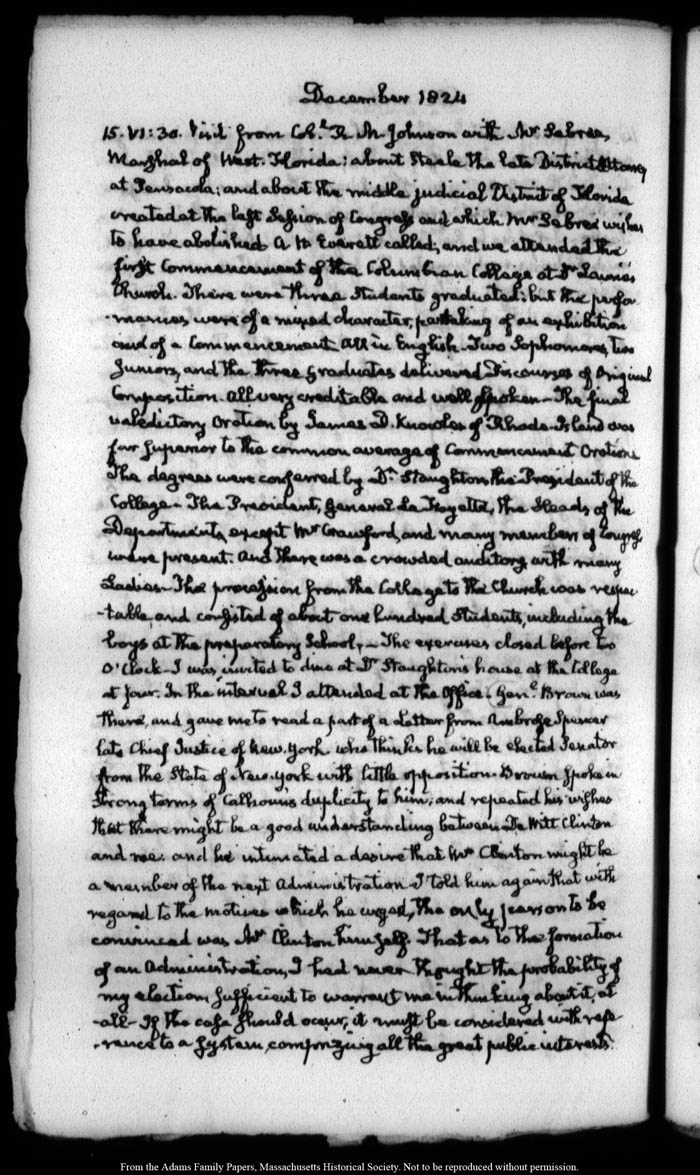 December 1824
15. VI:30. Visit from Col.l R. M. Johnson with Mr Sebree,
Marshal of West-Florida: about Steele the late District Attorney
at Pensacola; and about the middle judicial District of Florida
created at the last Session of Congress and which Mr Sebree wishes
to have abolished. A. H. Everett called, and we attended the
first Commencement of the Columbian College at Dr Laurie's
Church. There were three Students graduated: but the perfor
-mances were of a mixed character, partaking of an exhibition
and of a Commencement. All in English. Two Sophomores, two
Juniors, and the three graduates delivered Discourses of Original
Composition. All very creditable and well spoken. The final
valedictory Oration by James D. Knowles of Rhode-Island was
far superior to the common average of Commencement Orations
The degrees were conferred by Dr Staughton the President of the
College. The President, General La Fayette, the Heads of the
Departments, except Mr Crawford, and many members of Congress
were present. And there was a crowded auditory, with many
Ladies. The procession from the College to the Church was respec
-table, and consisted of about one hundred Students, including the
boys at the preparatory School,— The exercises closed before two
O'Clock—I was invited to dine at Dr Staughton's house at the College
at four. In the interval I attended at the Office. Gen.l Brown was
there, and gave me to read a part of a Letter from Ambrose Spencer
late Chief Justice of New-York who thinks he will be elected Senator
from the State of New-York with little opposition. Brown spoke in
strong terms of Calhoun's duplicity to him; and repeated his wishes
that there might be a good understanding between De Witt Clinton
and me: and he intimated a desire that Mr Clinton might be
a member of the next Administration—I told him again that with
regard to the motives which he urged, the only person to be
convinced was Mr Clinton himself. That as to the formation
of an Administration, I had never thought the probability of
my election, sufficient to warrant me in thinking about it, at
all—If the case should occur, it must be considered with refe
-rence to a system, comprizing all the great public interests.
From the Adams Family Papers, Massachusetts Historical Society. Not to be reproduced without permission.